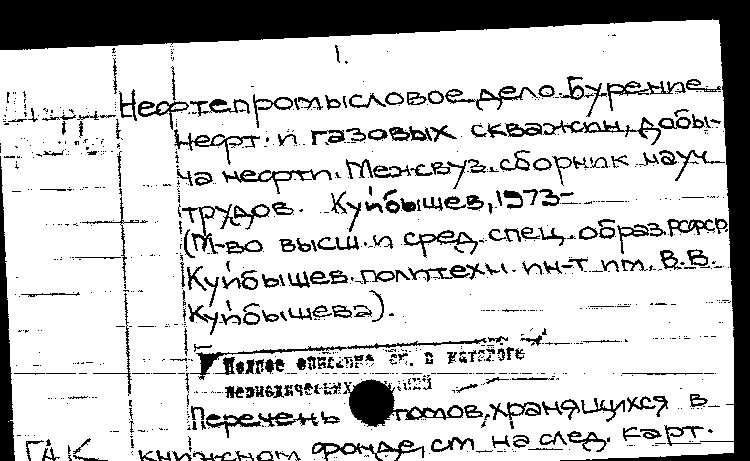 1.
Шифр Нефтепромысловое дело. Бурение
нефт. и газовых скважин, добы-
ча нефти. Межвуз. сборник науч.
трудов. Куйбышев, 1973-
(М-во высш. и сред. спец. образ. РСФСР.
Куйбышев. политехн. ин-т им. В.В.
Куйбышева).
Полное описание см. в каталоге
периодических изданий
Перечень томов, хранящихся в
ГАК книжном фонде, см на след. карт.